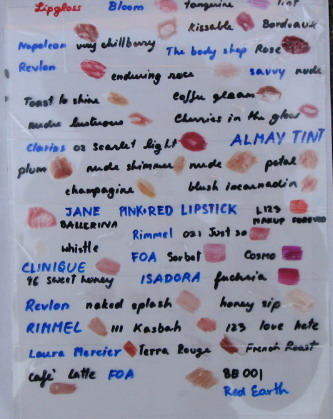 Lipgloss Bloom tangerine Tint
kissable Bordeaux
Napoleon very chillberry The body shop Rose
Revlon enduring rose savvy nude
Toast to shine coffee gleam
nude lustrous Cherries in the glow
Clarins 02 scarlet light ALMAY TINT
plum nude shimmer nude petal
champagine blush incarnadin
JANE PINK+RED LIPSTICK L123
BALLERINA MAKUP FOREVER
whistle Rimmel 021 Just so
FOA Sorbet Cosmo
CLINIQUE
96 Sweet honey ISADORA fuchsia
Revlon naked splash honey sip
RIMMEL 111 Kasbah 123 love hate
Laura Mercier Terra Rouge French Roast
cafe' Latte FOA BB 001
Red Earth